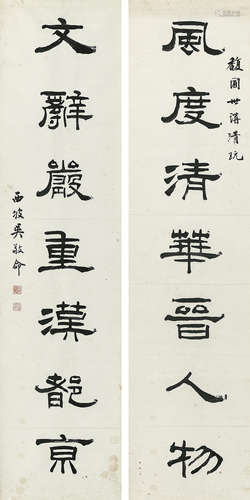 馥圃世講清玩
風度清華晉人物
文辭嚴重漢都京
西坡吳敬命